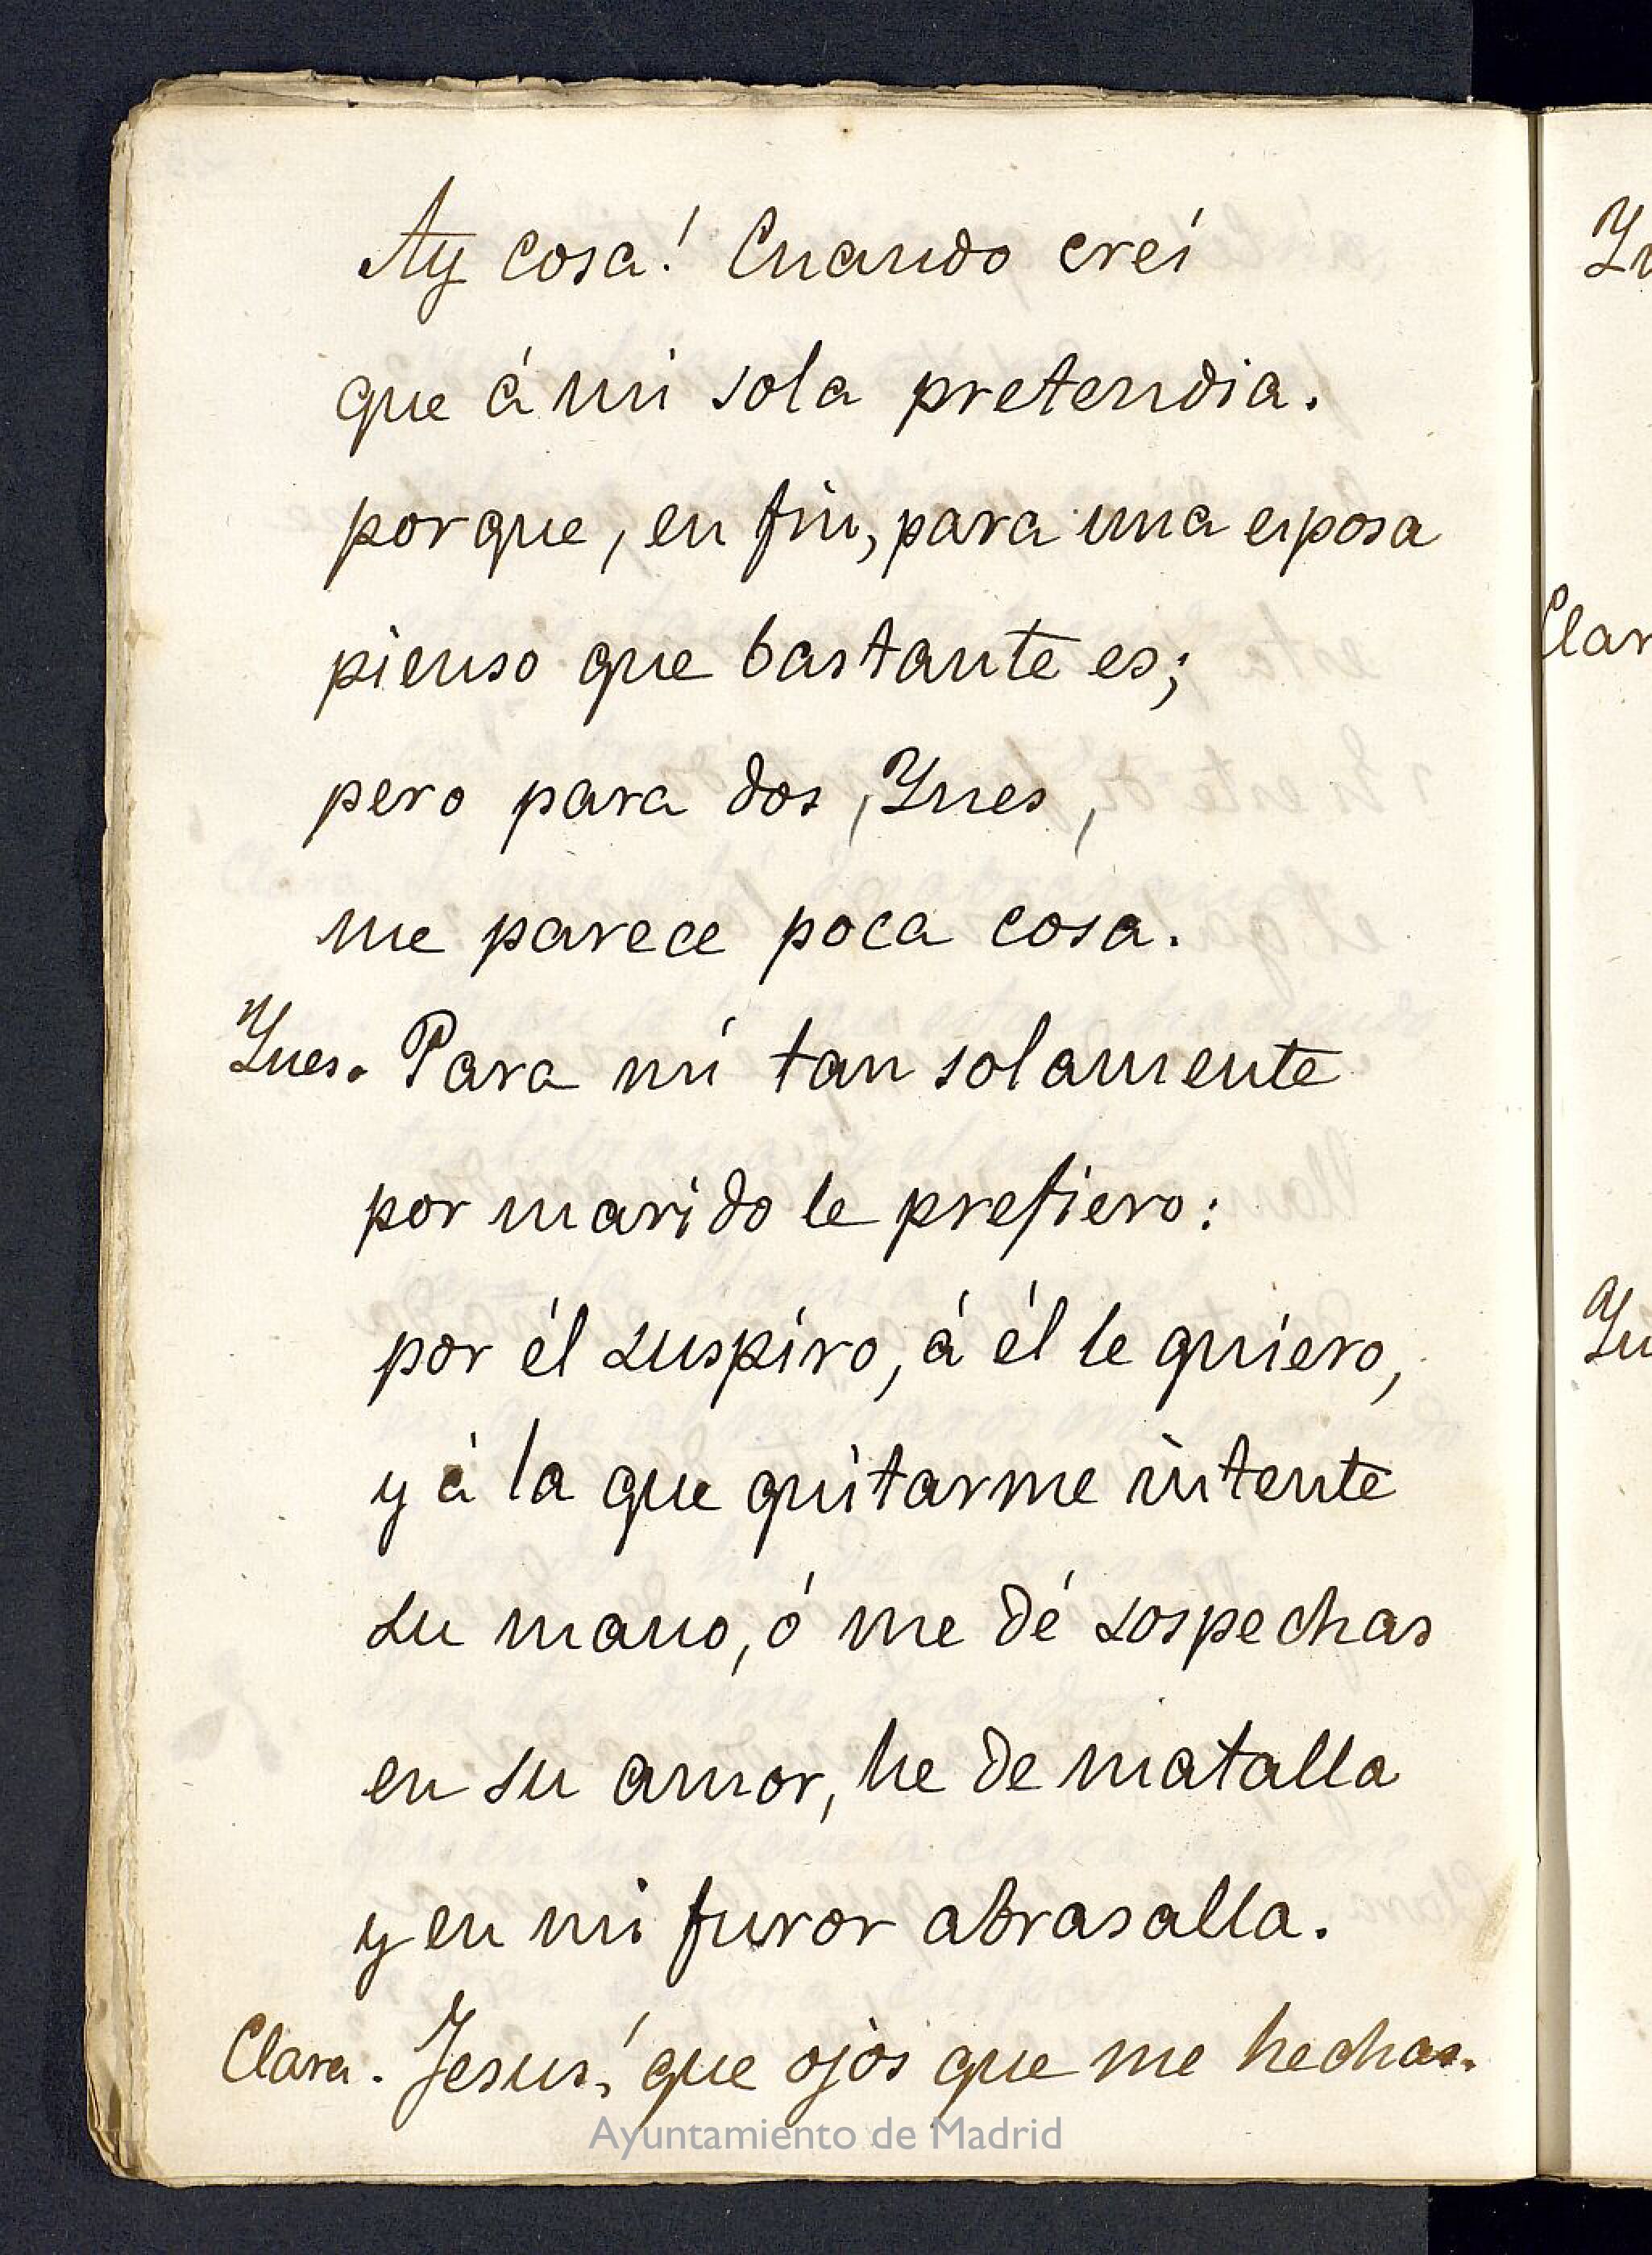 Ay cosa! Cuando creí
que á mi sola pretendia.
porque, en fin, para una esposa
pienso que bastante es;
pero para dos, Ynes,
me parece poca cosa.
Ynes. Para mí tan solamente
por marido le prefiero:
por él suspiro, á él le quiero,
y á la que quitarme intente
su mano, ó me dé sospechas
en su amor, he de matalla
y en mi furor abrasalla.
Clara. Jesus! que ojos que me hechas.
Ayuntamiento de Madrid
Clar